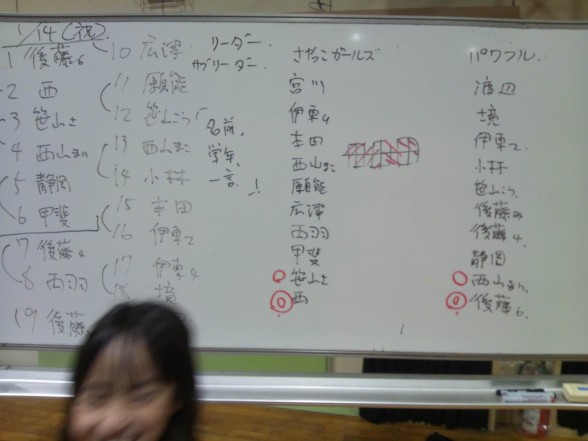 1/14(祝)
1 後藤6
2 西
3 笹山さ
4 西山まり
5 静岡
6 甲斐
7 後藤4
8 両羽
19 後藤
10 広澤
11 願能
12 笹山こう
13 西山まこ
14 小林
15 本田
16 伊東2
17 伊東4
18 境
リーダー.
サブリーダー.
名前.
学年.
一言.!
さやっこガールズ
宮川
伊東4
本田
西山まこ
願能
広澤
両羽
甲斐
笹山さ
西
パワフル.
渡辺
境
伊東2.
小林
笹山こう.
後藤み
後藤4.
静岡
西山まり.
後藤6.